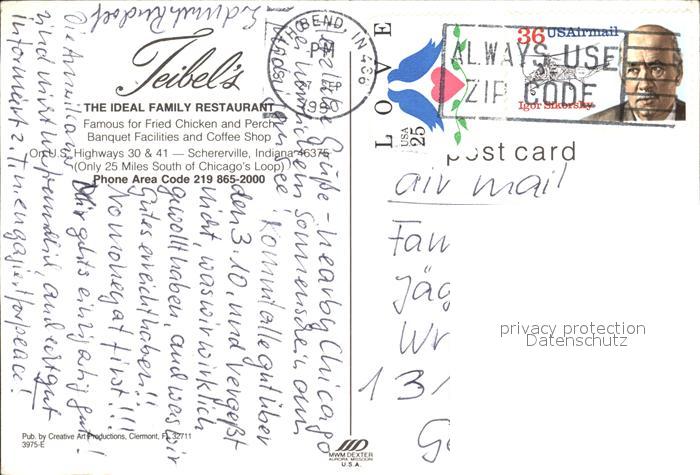 Teibel's
THE IDEAL FAMILY RESTAURANT
Famous for Fried Chicken and Perch
Banquet Facilities and Coffee Shop
On U.S. Highways 30 & 41 — Schererville, Indiana 46375
(Only 25 Miles South of Chicago's Loop)
Phone Area Code 219 865-2000
Herzliche Grüße - nearby Chicago
Sonnenschein am
Kommt alle gut über
den 3.10. und vergeßt
nicht, was wir wirklich
gewollt haben, und was wir
Gutes erreicht haben!!
No monegat first!!!
Mir geht's einzigartig gut!
Die Amerikaner
sind wirklich freundlich, und gut
informiert z.T. engagiert for peace!
Pub. by Creative Art Productions, Clermont, FL 32711
3975-E
MWM DEXTER
AURORA MISSOURI
U.S.A.
SOUTH BEND, IN 466
PM
LOVE
USA
25
ALWAYS USE
ZIP CODE
36
USAirmail
Igor Sikorsky
post card
air mail
Fam
Jäg
Wr
131
Ge
privacy protection
Datenschutz